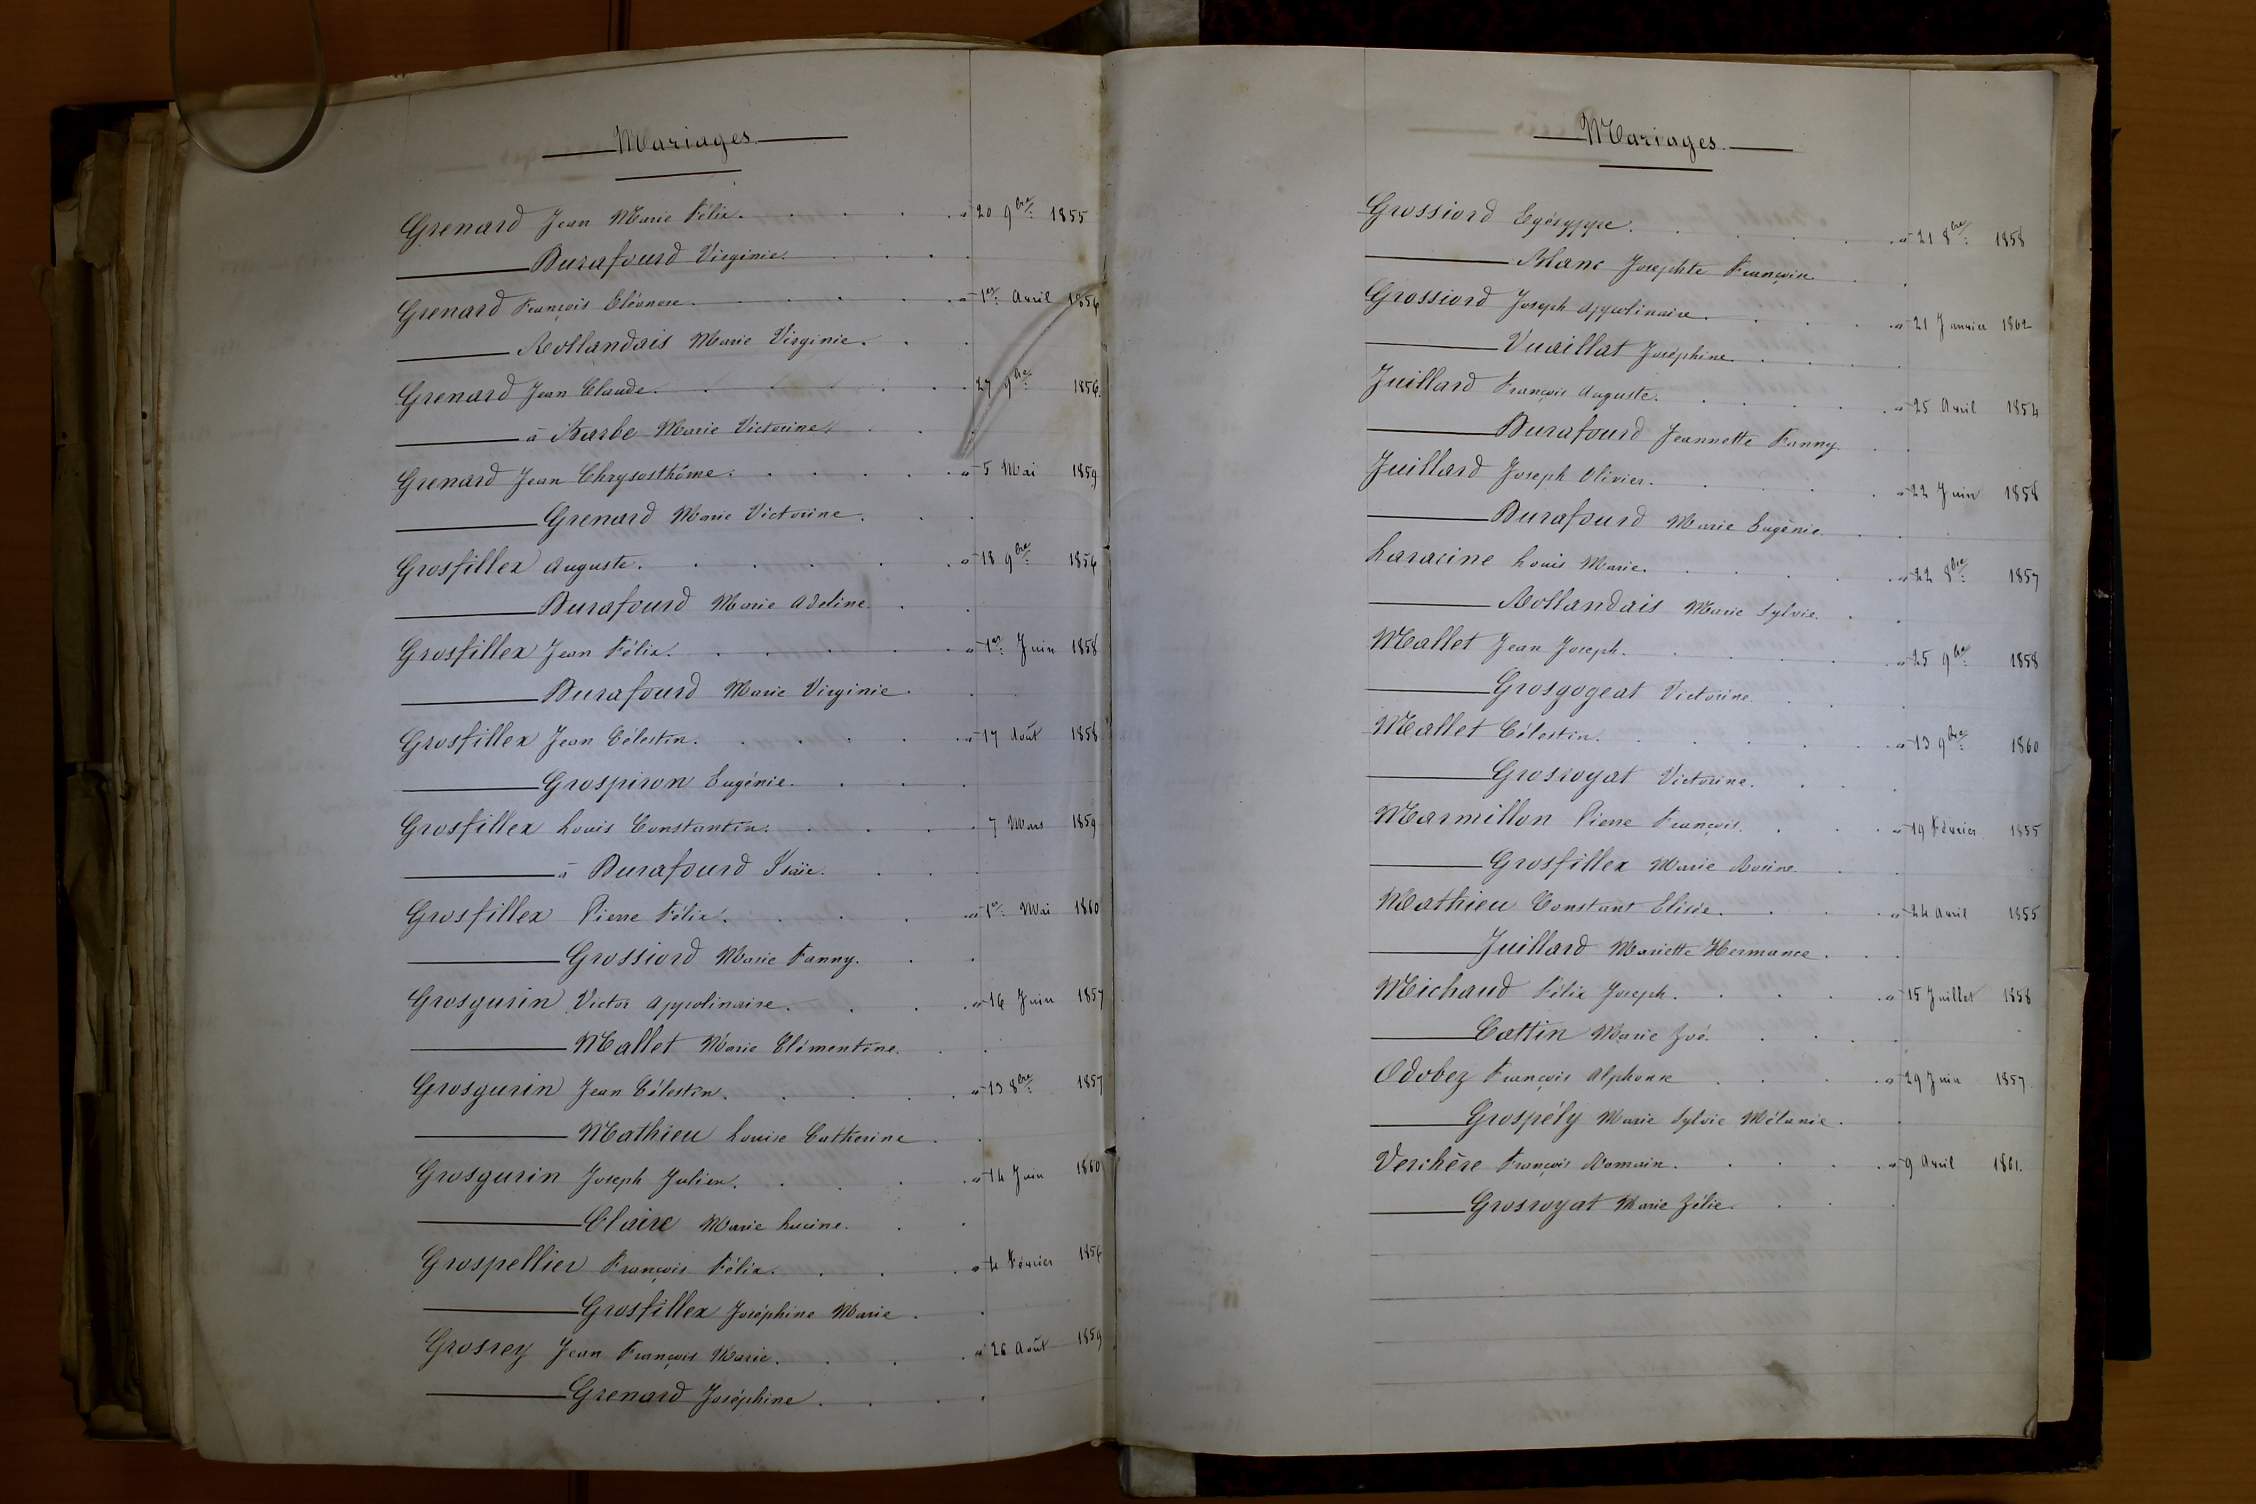 Mariages.
Grenard Jean Marie Félix. 20 9bre 1855
Durafourd Virginie.
Grenard François Eléonore. 1er Avril 1856
Rollandais Marie Virginie.
Grenard Jean Claude. 27 9bre 1856
à Barbe Marie Victorine.
Grenard Jean Chrysosthôme. 5 Mai 1859
Grenard Marie Victorine.
Grosfillex Auguste. 18 9bre 1856
Durafourd Marie Adeline.
Grosfillex Jean Félix. 1er Juin 1858
Durafourd Marie Virginie.
Grosfillex Jean Célestin. 17 Août 1858
Grospiron Eugénie.
Grosfillex Louis Constantin. 7 Mars 1859
à Durafourd Isaïe.
Grosfillex Pierre Félix. 1er Mai 1860
Grossiord Marie Fanny.
Grosgurin Victor Appolinaire. 16 Juin 1857
Mallet Marie Clémentine.
Grosgurin Jean Célestin. 13 8bre 1857
Mathieu Louise Catherine.
Grosgurin Joseph Julien. 14 Juin 1860
Claire Marie Lucine.
Grospellier François Félix. 4 Février 1856
Grosfillex Joséphine Marie.
Grosrey Jean François Marie. 26 Août 1859
Grenard Joséphine.
Mariages.
Grossiord Egésyppe. 21 8bre 1858
Blanc Josephte Françoise
Grossiord Joseph Appolinaire. 21 Janvier 1862
Vuaillat Joséphine.
Juillard François Auguste. 25 Avril 1854
Durafourd Jeannette Fanny.
Juillard Joseph Olivier. 22 Juin 1858
Durafourd Marie Eugénie.
Laracine Louis Marie. 22 8bre 1857
Rollandais Marie Sylvie.
Mallet Jean Joseph. 25 9bre 1858
Grosgogeat Victorine.
Mallet Célestin. 13 9bre 1860
Grosroyat Victorine.
Marmillon Pierre François. 19 Février 1855
Grosfillex Marie Rosine.
Mathieu Constant Elisée. 24 Avril 1855
Juillard Mariette Hermance.
Michaud Félix Joseph. 15 Juillet 1858
Cattin Marie Zoé.
Odobez François Alphonse 29 Juin 1857.
Grospély Marie Sylvie Mélanie.
Verchère François Romain. 9 Avril 1861.
Grosroyat Marie Zélie.